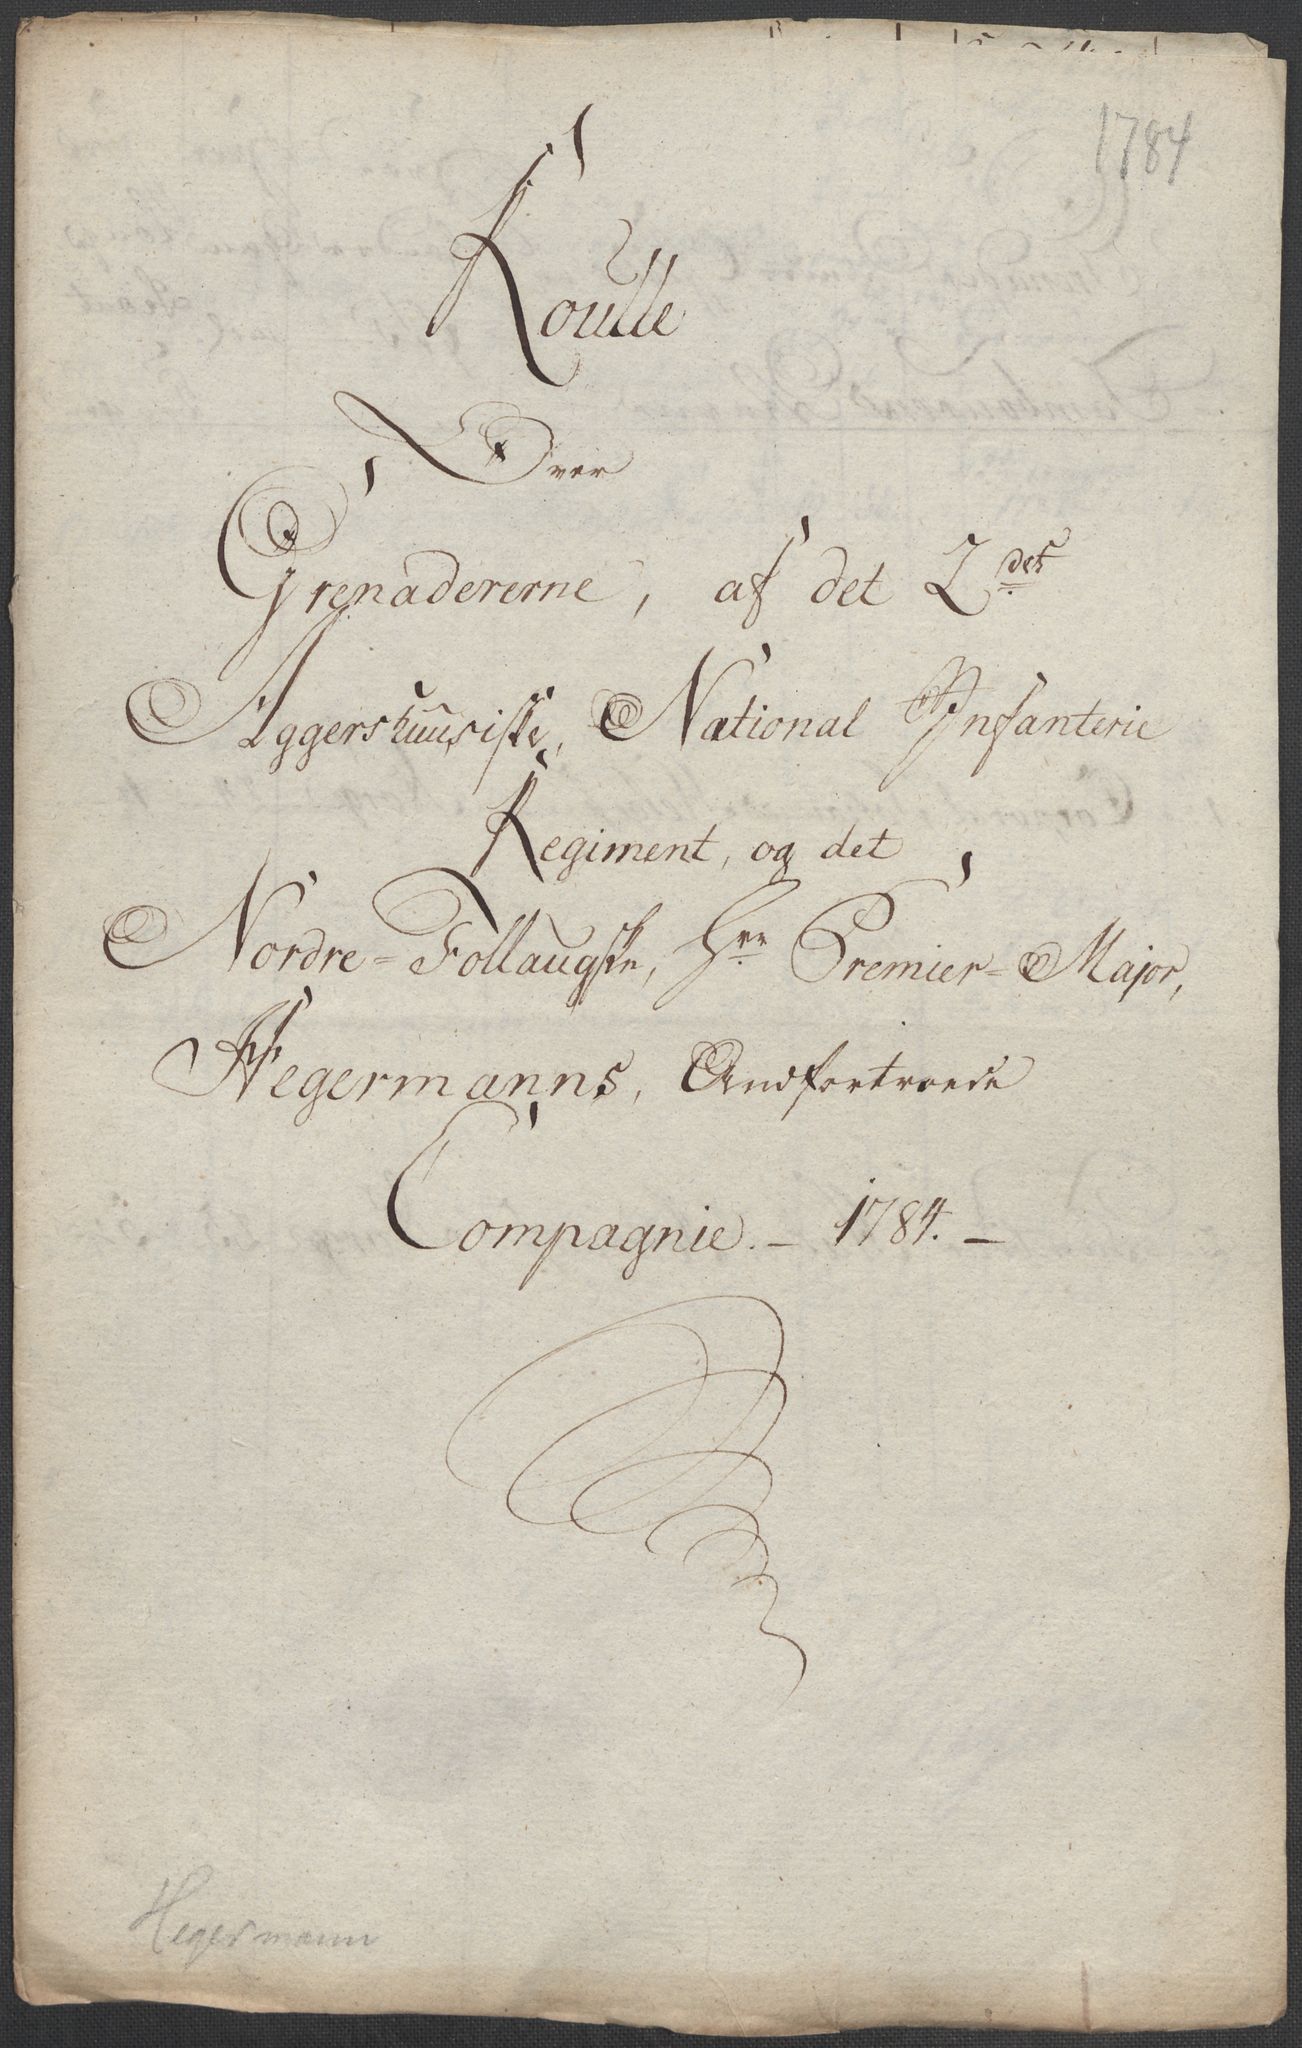 1784
Roulle
Over
Grenadererne, af det 2det
Aggershuusiske, National Infanterie
Regiment, og det
Nordre-Follaugske, Hrr Premier-Major,
Hegermanns, Andfortroede
Compagnie. – 1784. –
Hegermann